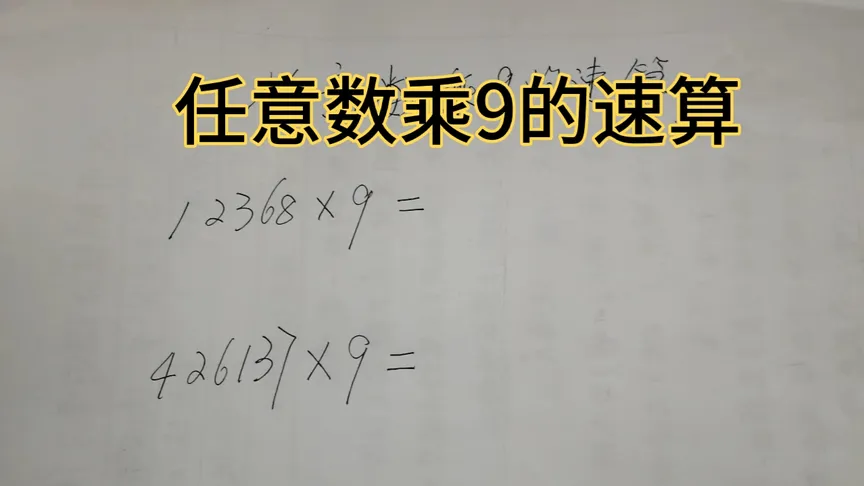 任意数乘9的速算
12368×9=
426137×9=